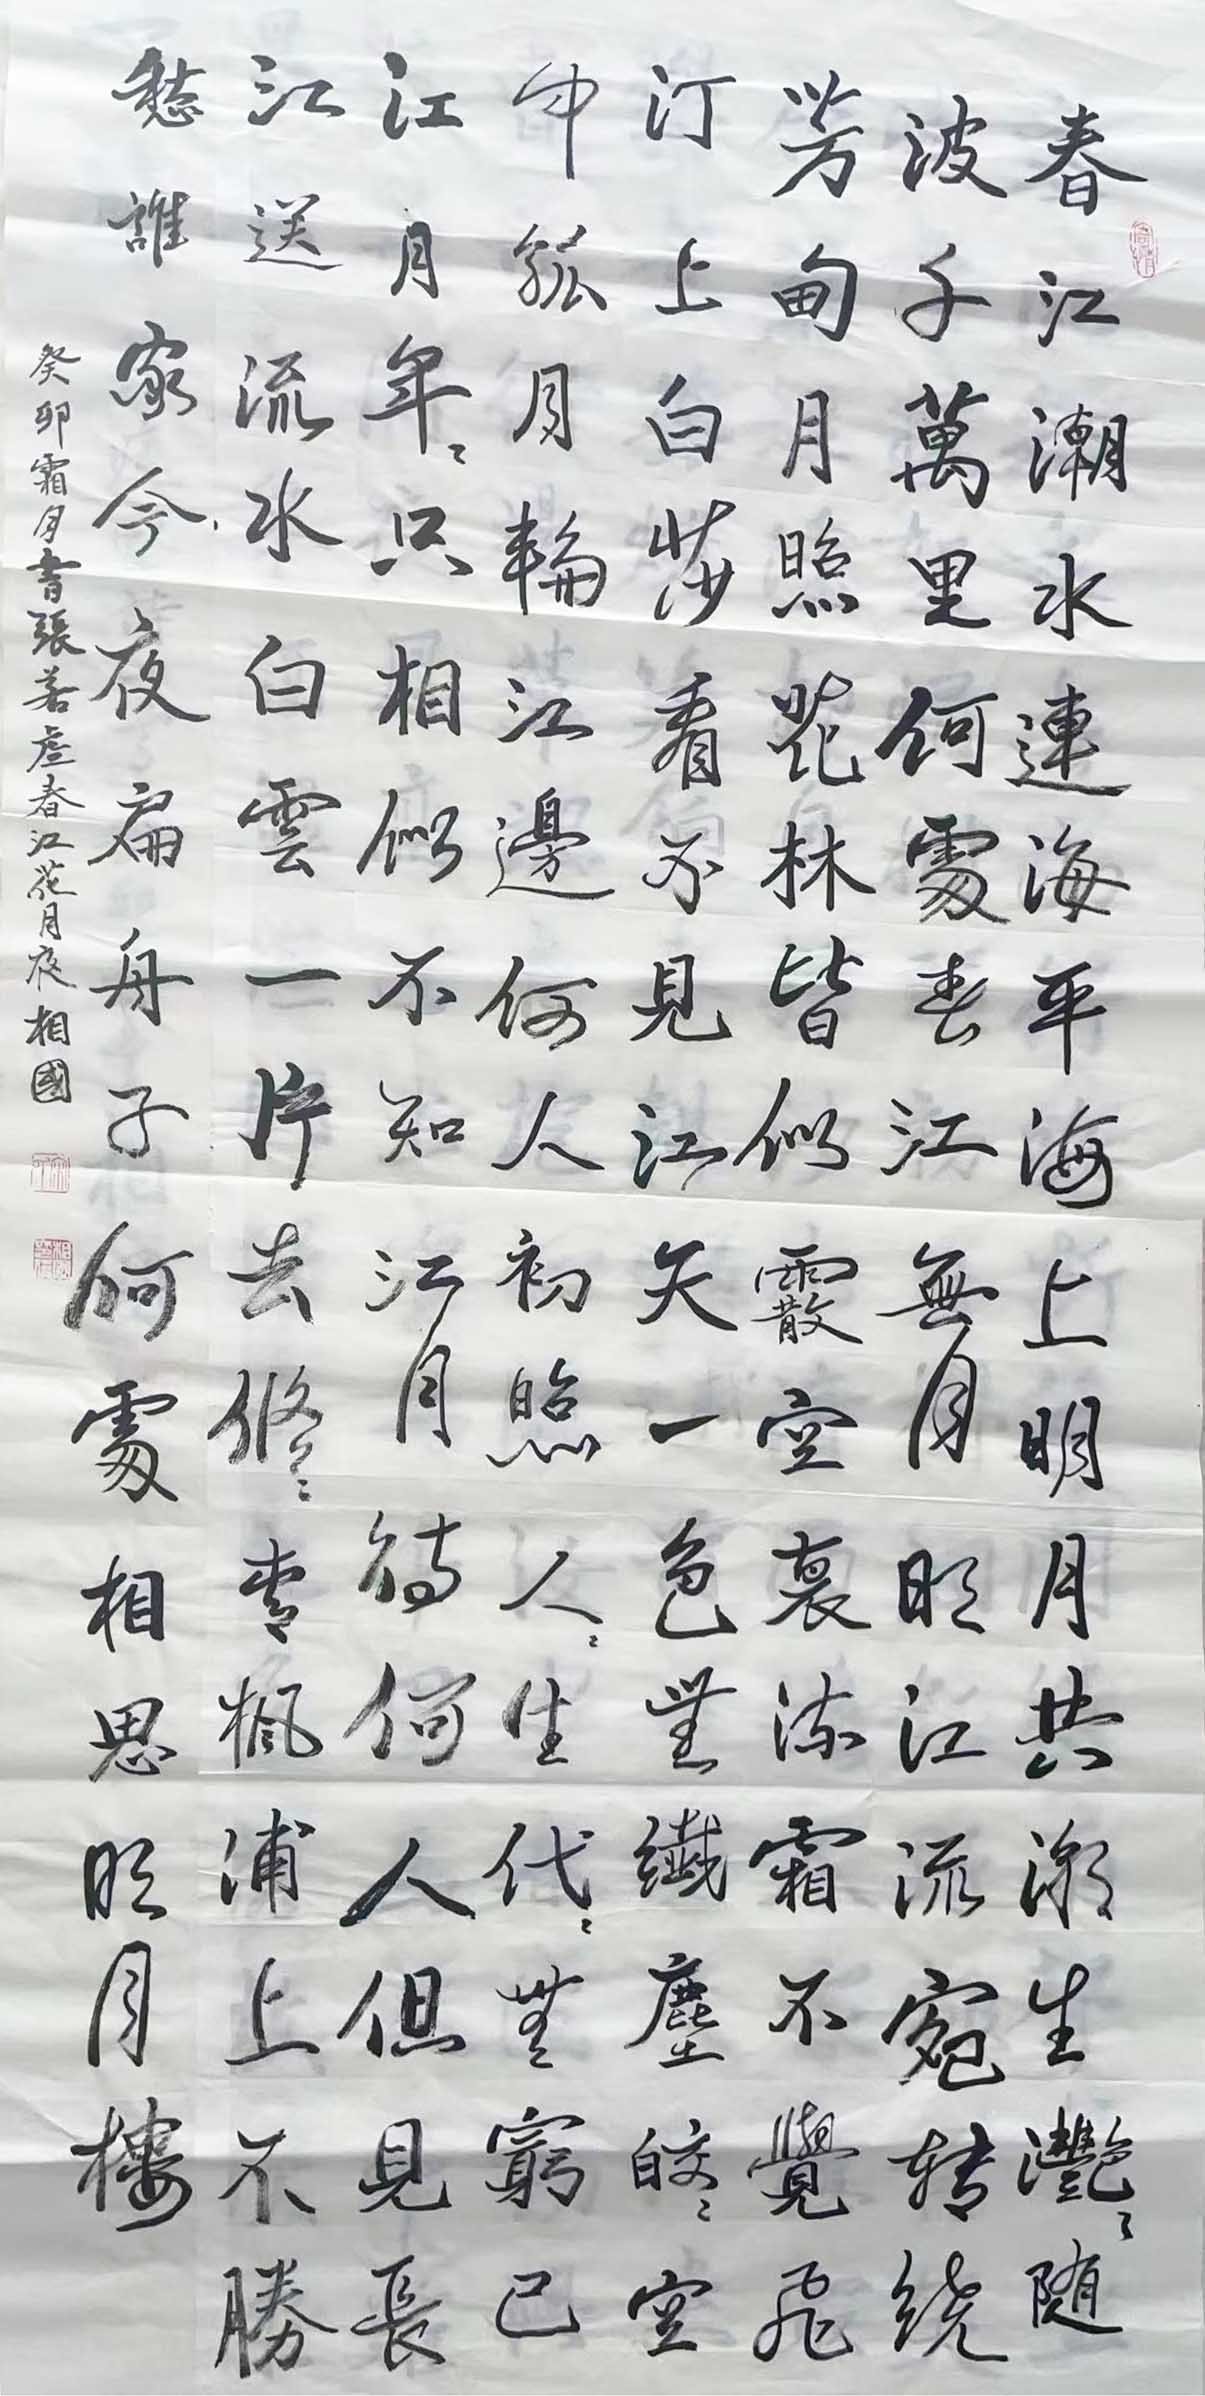 春江潮水連海平海上明月共潮生灩〻随
波千萬里何處春江無月明江流宛轉繞
芳甸月照花林皆似霰空裏流霜不覺飛
汀上白莎看不見江天一色無纖塵皎〻空
中孤月輪江邊何人初照人〻生代〻無窮已
江月年〻只相似不知江月待何人但見長
江送流水白雲一片去悠〻青楓浦上不勝
愁誰家今夜扁舟子何處相思明月樓
癸卯霜月書張若虛春江花月夜相國